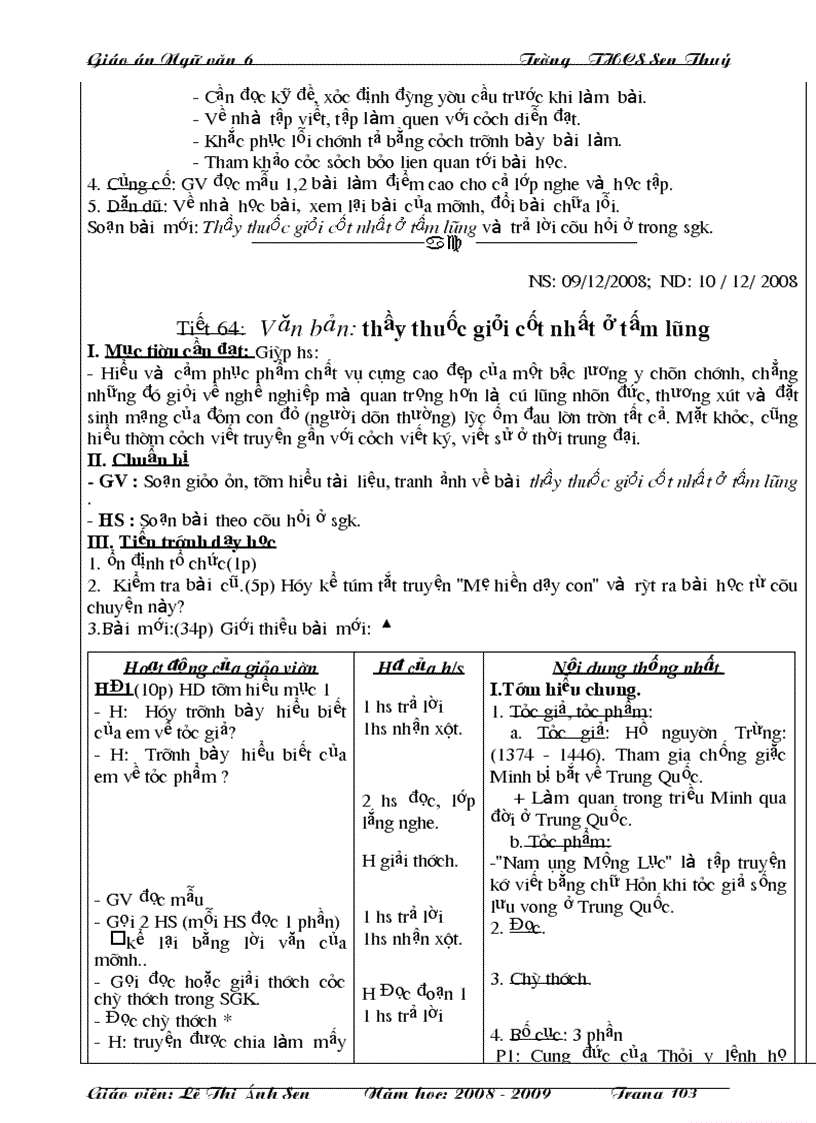 Giáo án Ngữ văn 6 Trờng THCS Sen Thuỷ
- Cần đọc kỹ đề, xỏc định đỳng yờu cầu trước khi làm bài.
- Về nhà tập viết, tập làm quen với cỏch diễn đạt.
- Khắc phục lỗi chớnh tả bằng cỏch trỡnh bày bài làm.
- Tham khảo cỏc sỏch bỏo lien quan tới bài học.
4. Củng cố: GV đọc mẫu 1,2 bài làm điểm cao cho cả lớp nghe và học tập.
5. Dăn dũ: Về nhà học bài, xem lại bài của mỡnh, đổi bài chữa lỗi.
Soạn bài mới: Thầy thuốc giỏi cốt nhất ở tấm lũng và trả lời cõu hỏi ở trong sgk.
NS: 09/12/2008; ND: 10 / 12/ 2008
Tiết 64: Văn bản: thầy thuốc giỏi cốt nhất ở tấm lũng
I. Mục tiờu cần đạt: Giỳp hs:
- Hiểu và cảm phục phẩm chất vụ cựng cao đẹp của một bậc lương y chõn chớnh, chẳng
những đó giỏi về nghề nghiệp mà quan trọng hơn là cú lũng nhõn đức, thương xút và đặt
sinh mạng của đỏm con đỏ (người dõn thường) lỳc ốm đau lờn trờn tất cả. Mặt khỏc, cũng
hiểu thờm cỏch viết truyện gần với cỏch viết ký, viết sử ở thời trung đại.
II. Chuẩn bị
- GV : Soạn giỏo ỏn, tỡm hiểu tài liệu, tranh ảnh về bài thầy thuốc giỏi cốt nhất ở tấm lũng
.
- HS : Soạn bài theo cõu hỏi ở sgk.
III. Tiến trỡnh dạy học
1. ổn định tổ chức(1p)
2. Kiểm tra bài cũ.(5p) Hóy kể túm tắt truyện "Mẹ hiền dạy con" và rỳt ra bài học từ cõu
chuyện này?
3.Bài mới:(34p) Giới thiệu bài mới: ▲
Hoạt động của giỏo viờn
HĐ1(10p) HD tỡm hiểu mục 1
- H: Hóy trỡnh bày hiểu biết
của em về tỏc giả?
- H: Trỡnh bày hiểu biết của
em về tỏc phẩm ?
- GV đọc mẫu
- Gọi 2 HS (mỗi HS đọc 1 phần)
□kể lại bằng lời văn của
mỡnh..
- Gọi đọc hoặc giải thớch cỏc
chỳ thớch trong SGK.
- Đọc chỳ thớch *
- H: truyện được chia làm mấy
Hđ của h/s
1 hs trả lời
1hs nhận xột.
2 hs đọc, lớp
lắng nghe.
H giải thớch.
1 hs trả lời
1hs nhận xột.
H Đọc đoạn 1
1 hs trả lời
Nội dung thống nhất
I.Tỡm hiểu chung.
1. Tỏc giả, tỏc phẩm:
a. Tỏc giả: Hồ nguyờn Trừng:
(1374 - 1446). Tham gia chống giặc
Minh bị bắt về Trung Quốc.
+ Làm quan trong triều Minh qua
đời ở Trung Quốc.
b. Tỏc phẩm:
-"Nam ụng Mộng Lục" là tập truyện
kớ viết bằng chữ Hỏn khi tỏc giả sống
lưu vong ở Trung Quốc.
2. Đọc.
3. Chỳ thớch.
4. Bố cục: 3 phần
P1: Cung đức của Thỏi y lệnh họ
Giáo viên: Lê Thị Ánh Sen Năm học: 2008 - 2009 Trang 103